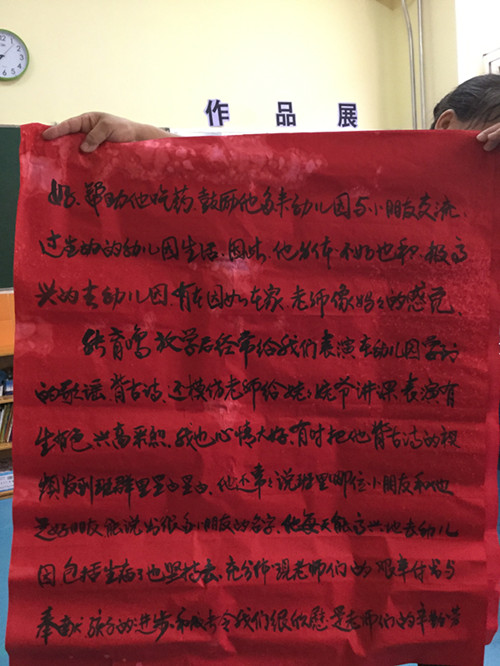 作品展
好、帮助他吃药,鼓励他多来幼儿园与小朋友交流,
过当的的幼儿园生活。因此,他身体不好也积极高
兴的去幼儿园,有在园如在家,老师像妈妈的感觉。
放学后经常给我们表演在幼儿园学的
的歌谣、背古诗,还模仿老师给姥姥姥爷讲课,表演有
生有色,兴高彩烈。我也心情大好,有时把他背古诗的视
频发到班群里。他还常常说班里哪位小朋友和他
是好朋友,能说出很多小朋友的名字。他每天能高兴地去幼儿
园包括生病了也坚持去,充分体现老师们的艰辛付出与
奉献,孩子的进步和成长令我们很欣慰,是老师们的辛勤劳